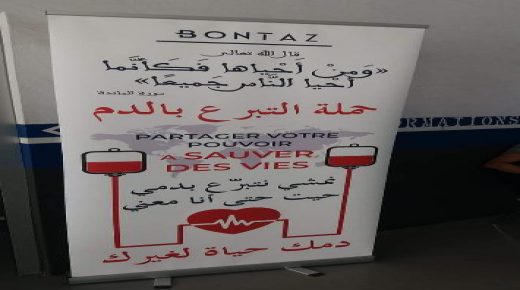 BONTAZ
قال الله تعالى
«وَمَنْ أَحْيَاهَا فَكَأَنَّمَا
أَحْيَا النَّاسَ جَمِيعًا»
سورة المائدة
حملة التبرع بالدم
PARTAGER VOTRE
POUVOIR
A SAUVER
DES VIES
نمشي نتبرّع بدمي
حيت حتى أنا معني
دمك حياة لغيرك
ORMATIONS